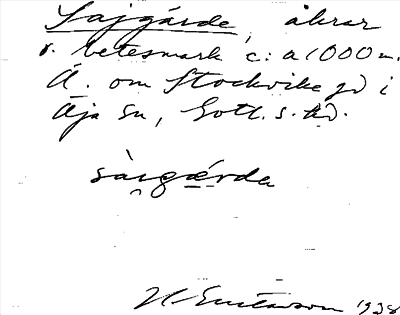 Sajgårde, åkrar
o. betesmark c:a 1000 m.
Ä. om Stockvike gd i
Öja sn, Gotl. s. hd.
sàıgǽrda
H Gustavson 1928